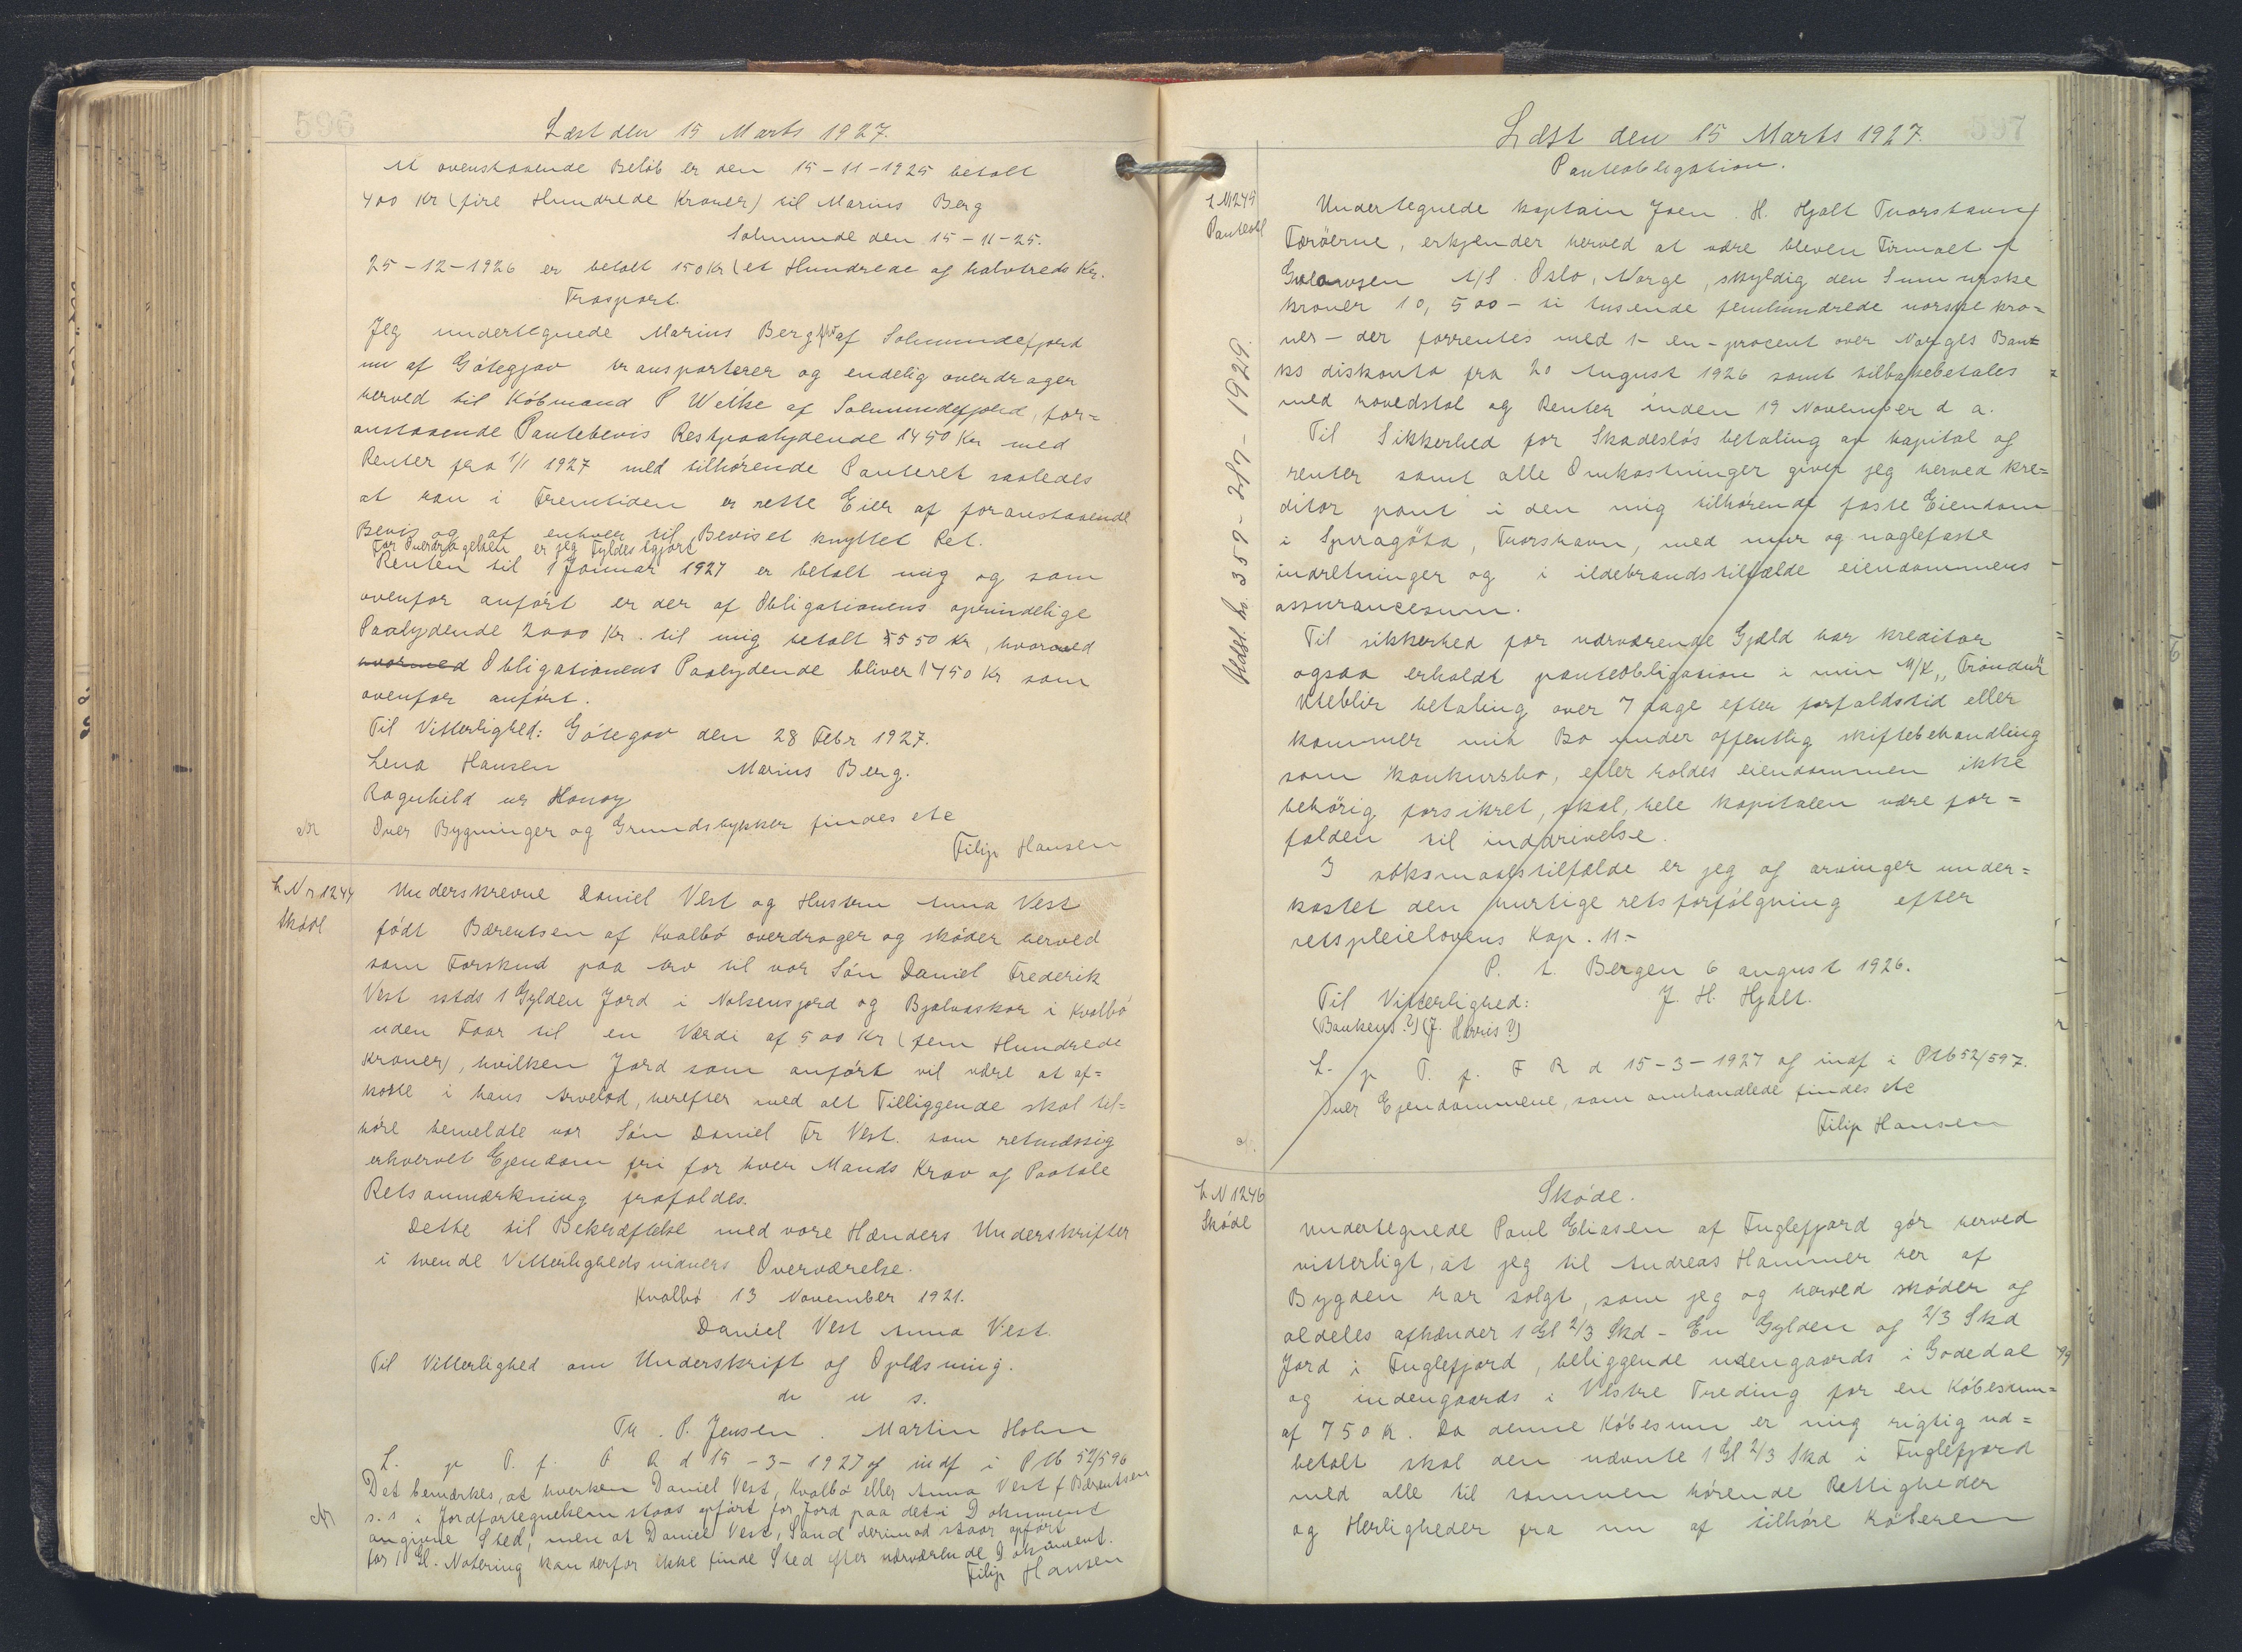 596
Læst den 15 Marts 1927.
Af ovenstaaende Beløb er den 15-11-1925 betalt
400 Kr (fire Hundrede Kroner) til Marius Berg
Solmunde den 15-11-25.
25-12-1926 er betalt 150 Kr (et Hundrede og halvtreds Kr.
Trasport.
Jeg undertegnede Marius Berg før af Solmundefjord
nu af Gøtegjov transporterer og endelig overdrager
herved til Købmand P Weihe af Solmundefjord, for=
anstaaende Pantebevis Restpaalydende 1450 Kr med
Renter fra 1/1 1927 med tilhørende Panteret saaledes
at han i Fremtiden er rette Eier af foranstaaende
Bevis og af enhver til Beviset knyttet Ret.
For Overdragelsen er jeg Fyldestgjort
Renten til 1 Januar 1927 er betalt mig og som
ovenfor anført er der af Obligationens oprindelige
Paalydende 2000 Kr. til mig betalt 550 Kr, hvorved
hvormed Obligationens Paalydende bliver 1450 Kr som
ovenfor anført.
Til Vitterlighed: Gøtegov den 28 Febr 1927.
Lena Hansen Marius Berg.
Ragnhild ur Honoy
Over Bygninger og Grundstykker findes ete
Filip Hansen
L Nr 1244
Skødl
Underskrevne Daniel Vest og Hustru Anna Vest
født Bærentsen af Kvalbø overdrager og skøder herved
som Forskud paa Arv til vor Søn Daniel Frederik
Vest 1 Gylden Jord i Nolsensjord og Bjalvaskor i Kvalbø
uden Faar til en Værdi af 500 Kr (fem Hundrede
Kroner), hvilken Jord som anført vil være at af=
korte i hans Arvelod, herefter med alt Tilliggende skal til=
høre bemeldte vor Søn Daniel Fr Vest. som retmæssig
erhvervet Ejendom fri for hver Mands Krav og Paatale
Retsanmærkning frafaldes.
Dette til Bekræftelse med vore Hænders Underskrifter
i tvende Vitterlighedsvidners Overværelse.
Kvalbø 13 November 1921.
Daniel Vest Anna Vest.
Til Vitterlighed om Underskrift og Oplæsning.
d u s.
Th. P. Jensen. Martin Holm
L. p T. f. F R d 15-3-1927 og indf i Ptb 52/596
Det bemærkes, at hverken Daniel Vest, Kvalbø eller Anna Vest f Bærentsen
s. s i Jordfortegnelsen staas opført for Jord paa det i Dokument
angivne Sted, men at Daniel Vest, Sand derimod staar opført
for 1 Gl. Notering kan derfor ikke finde Sted efter nærværende Dokument.
Filip Hansen
597
Læst den 15 Marts 1927.
Panteobligation.
L N1245
Panteobl
Undertegnede kaptain Joen. H. Hjalt Tvorshavn
Færøerne, erkjender herved at være bleven Firmaet
A/S. Oslo, Norge, skyldig den Sum norske
kroner 10,500 - ti tusende femhundrede norske kro=
ner - der forrentes med 1 - en - procent over Norges Ban=
ks diskonto fra 20 August 1926 samt tilbakebetales
med hovedstol og Renter inden 19 November d a.
Til Sikkerhed for Skadesløs betaling av kapital og
renter samt alle Omkostninger giver jeg herved kre=
ditor pant i den mig tilhørende faste Eiendom
i Spuragøta, Tvorshavn, med mur og naglefaste
indretninger og i ildebrandstilfælde eiendommens
assurancesum.
Til sikkerhed for nærværende Gjæld har kreditor
ogsaa erholdt panteobligation i min M/K "Trondur"
Uteblir betaling over 7 dage efter forfaldstid eller
kommer mit Bo under offentlig skiftebehandling
som konkursbo, eller holdes eiendommen ikke
behørig forsikret, skal hele kapitalen være for=
falden til inddrivelse.
I søksmaalstilfælde er jeg og arvinger under=
kastet den hurtige retsforfølgning efter
retspleielovens Kap. 11-
P. t. Bergen 6 august 1926.
Til Vitterlighed: J. H. Hjalt.
(Bankens?) (J. Harris?)
L. p T. f. F R d 15-3-1927 og indf i Ptb 52/597.
Over Ejendommene, som omhandlede findes ete
Filip Hansen
Udsl. no. 359 - 2/7 - 1929.
L N 1246
Skøde
Skøde.
Undertegnede Poul Eliasen af Fuglefjord gør herved
vitterligt, at jeg til Andreas Hammer her af
Bygden har solgt, som jeg og herved skøder og
aldeles afhænder 1 Gl 2/3 Skd - En Gylden og 2/3 Skd
Jord i Fuglefjord, beliggende udengaards i Godedal
og indengaards i Vestre Treding for en Købesum=
af 750 Kr. Da denne Købesum er mig rigtig ud=
betalt skal den nævnte 1 Gl 2/3 Skd i Fuglefjord
med alle til sammen hørende Rettigheder
og Herligheder fra nu af tilhøre Køberen